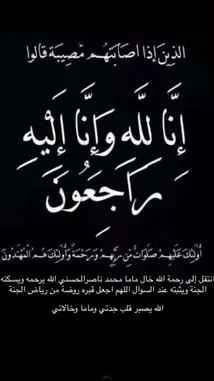 الذين إذا اصابتهم مصيبة قالوا
إِنَّا لِلَّهِ وَإِنَّا إِلَيْهِ
رَاجِعُونَ
أُولَئِكَ عَلَيْهِمْ صَلَوَاتٌ مِّن رَّبِّهِمْ وَرَحْمَةٌ وَأُولَئِكَ هُمُ الْمُهْتَدُونَ
انتقل إلى رحمة الله خال ماما محمد ناصرالحسني الله يرحمه ويسكنه
الجنة ويثبته عند السوال اللهم اجعل قبره روضة من رياض الجنة
الله يصبر قلب جدتي وماما وخالاتي